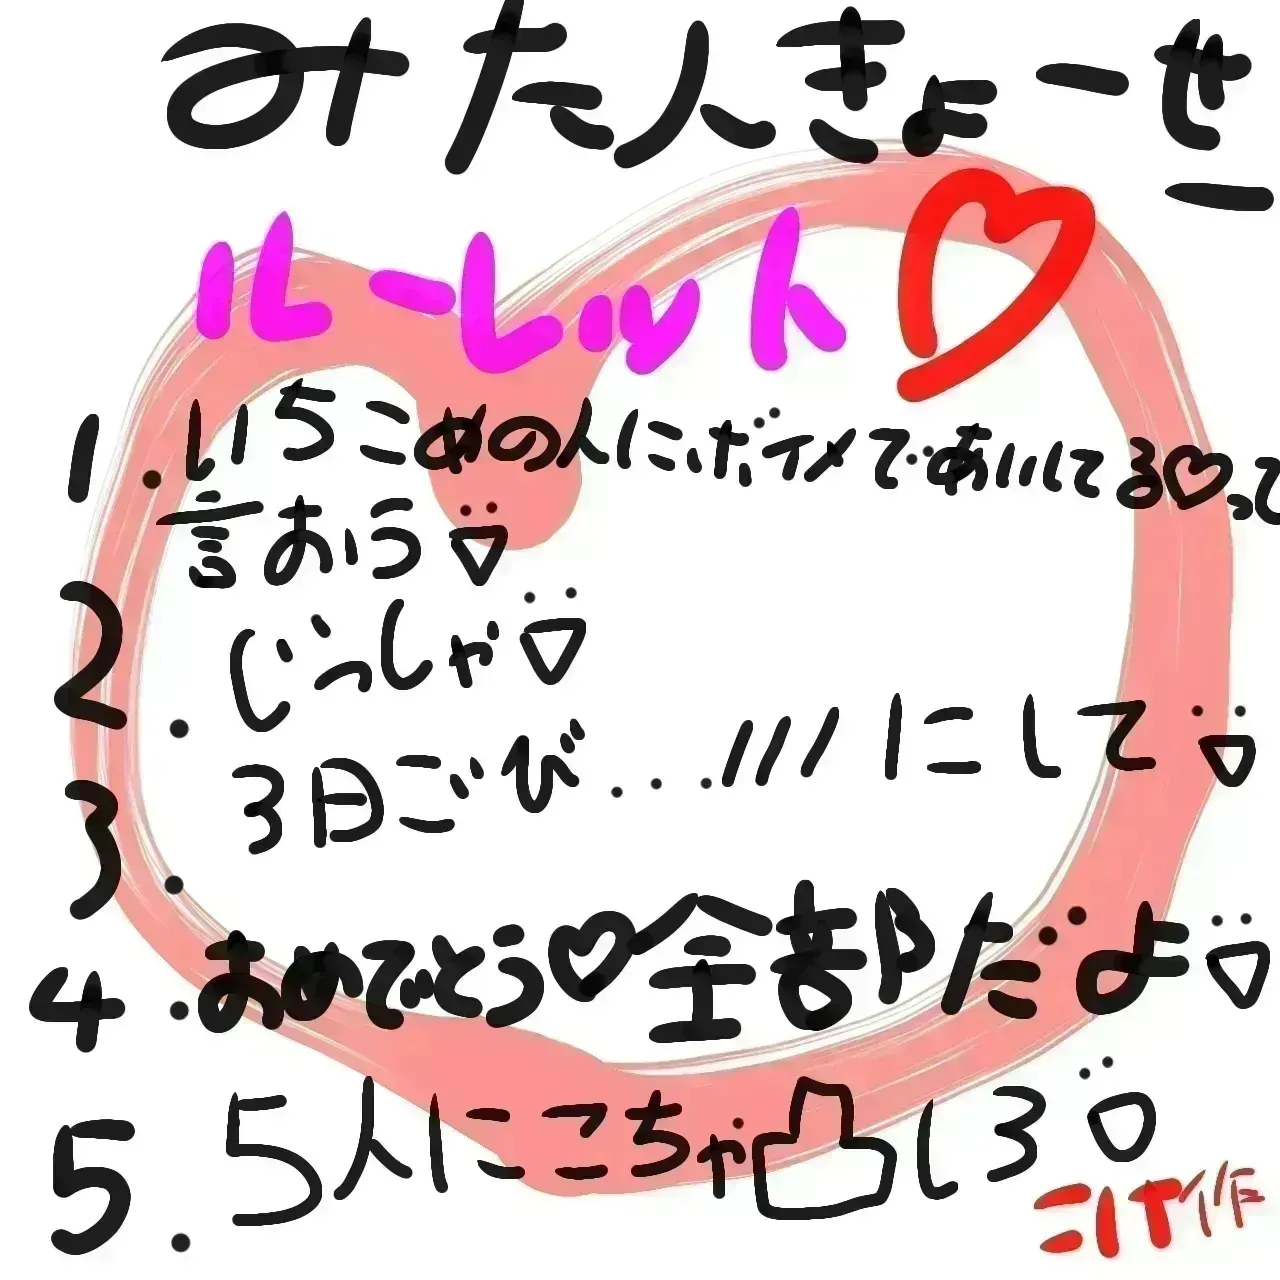 みた人きょーせ
ー
ルーレット♡
1.いちこめの人にボイメであいしてる♡って
言おう
2.じっしゃ
3.3日ごび...///にして
4.おめでとう♡全部だよ
5.5人にこちゃ凸しろ
作